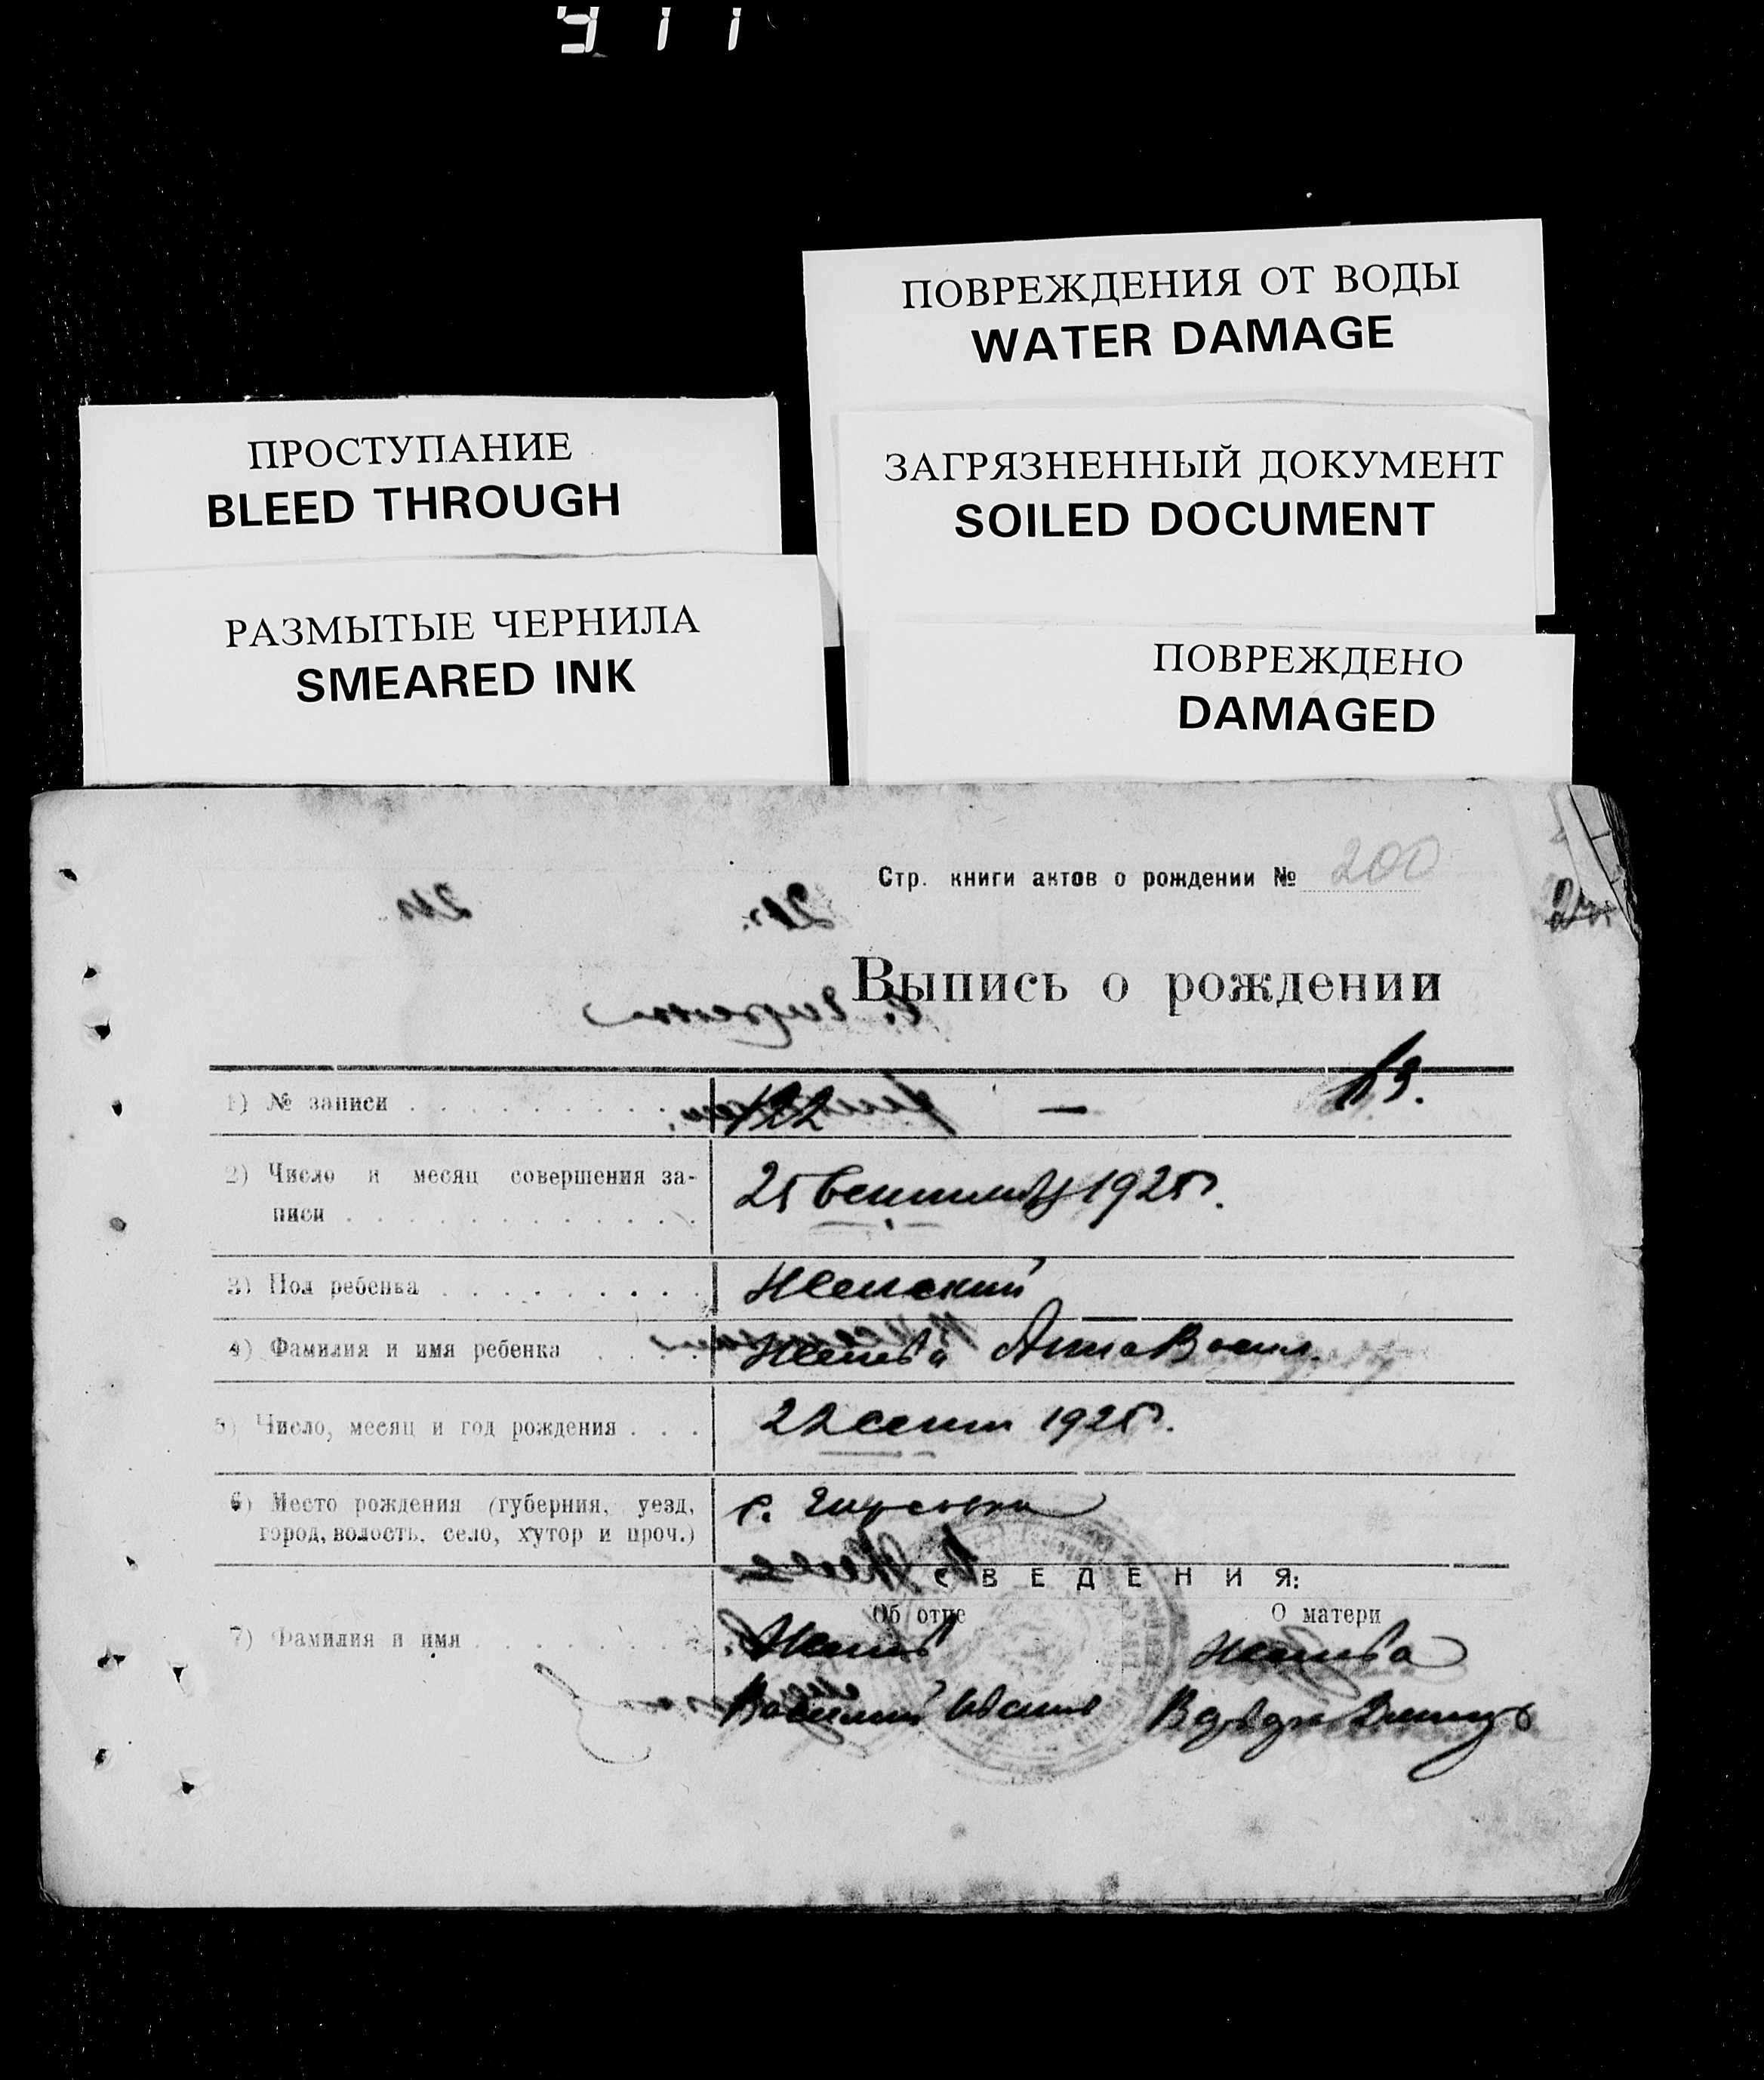 911
ПОВРЕЖДЕНИЯ ОТ ВОДЫ
WATER DAMAGE
ПРОСТУПАНИЕ
BLEED THROUGH
ЗАГРЯЗНЕННЫЙ ДОКУМЕНТ
SOILED DOCUMENT
РАЗМЫТЫЕ ЧЕРНИЛА
SMEARED INK
ПОВРЕЖДЕНО
DAMAGED
Стр. книги актов о рождении № 200
Выпись о рождении
1) № записи 122 —
2) Число и месяц совершения за-
писи 25 Сентября 1925г.
3) Пол ребенка Женский
4) Фамилия и имя ребенка Анна Васил.
5) Число, месяц и год рождения 22 сент 1925г.
6) Место рождения (губерния, уезд,
город, волость, село, хутор и проч.) с.
СВЕДЕНИЯ:
Об отце О матери
7) Фамилия и имя
Василий Иванов